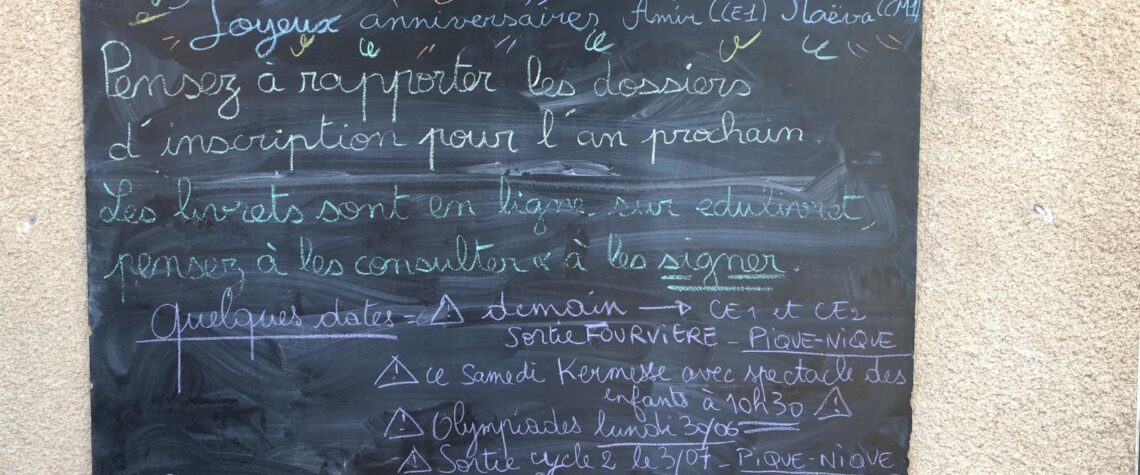 Joyeux anniversaires Amir (CE1) Maëva (CM1)
Pensez à rapporter les dossiers
d'inscription pour l'an prochain.
Les livrets sont en ligne sur edulivret,
pensez à les consulter & à les signer.
Quelques dates = ⚠ demain → CE1 et CE2
Sortie FOURVIÈRE - PIQUE-NIQUE
⚠ ce samedi Kermesse avec spectacle des
enfants à 10h30 ⚠
⚠ Olympiades lundi 30/06
⚠ Sortie cycle 2 le 3/07 - PIQUE-NIQUE